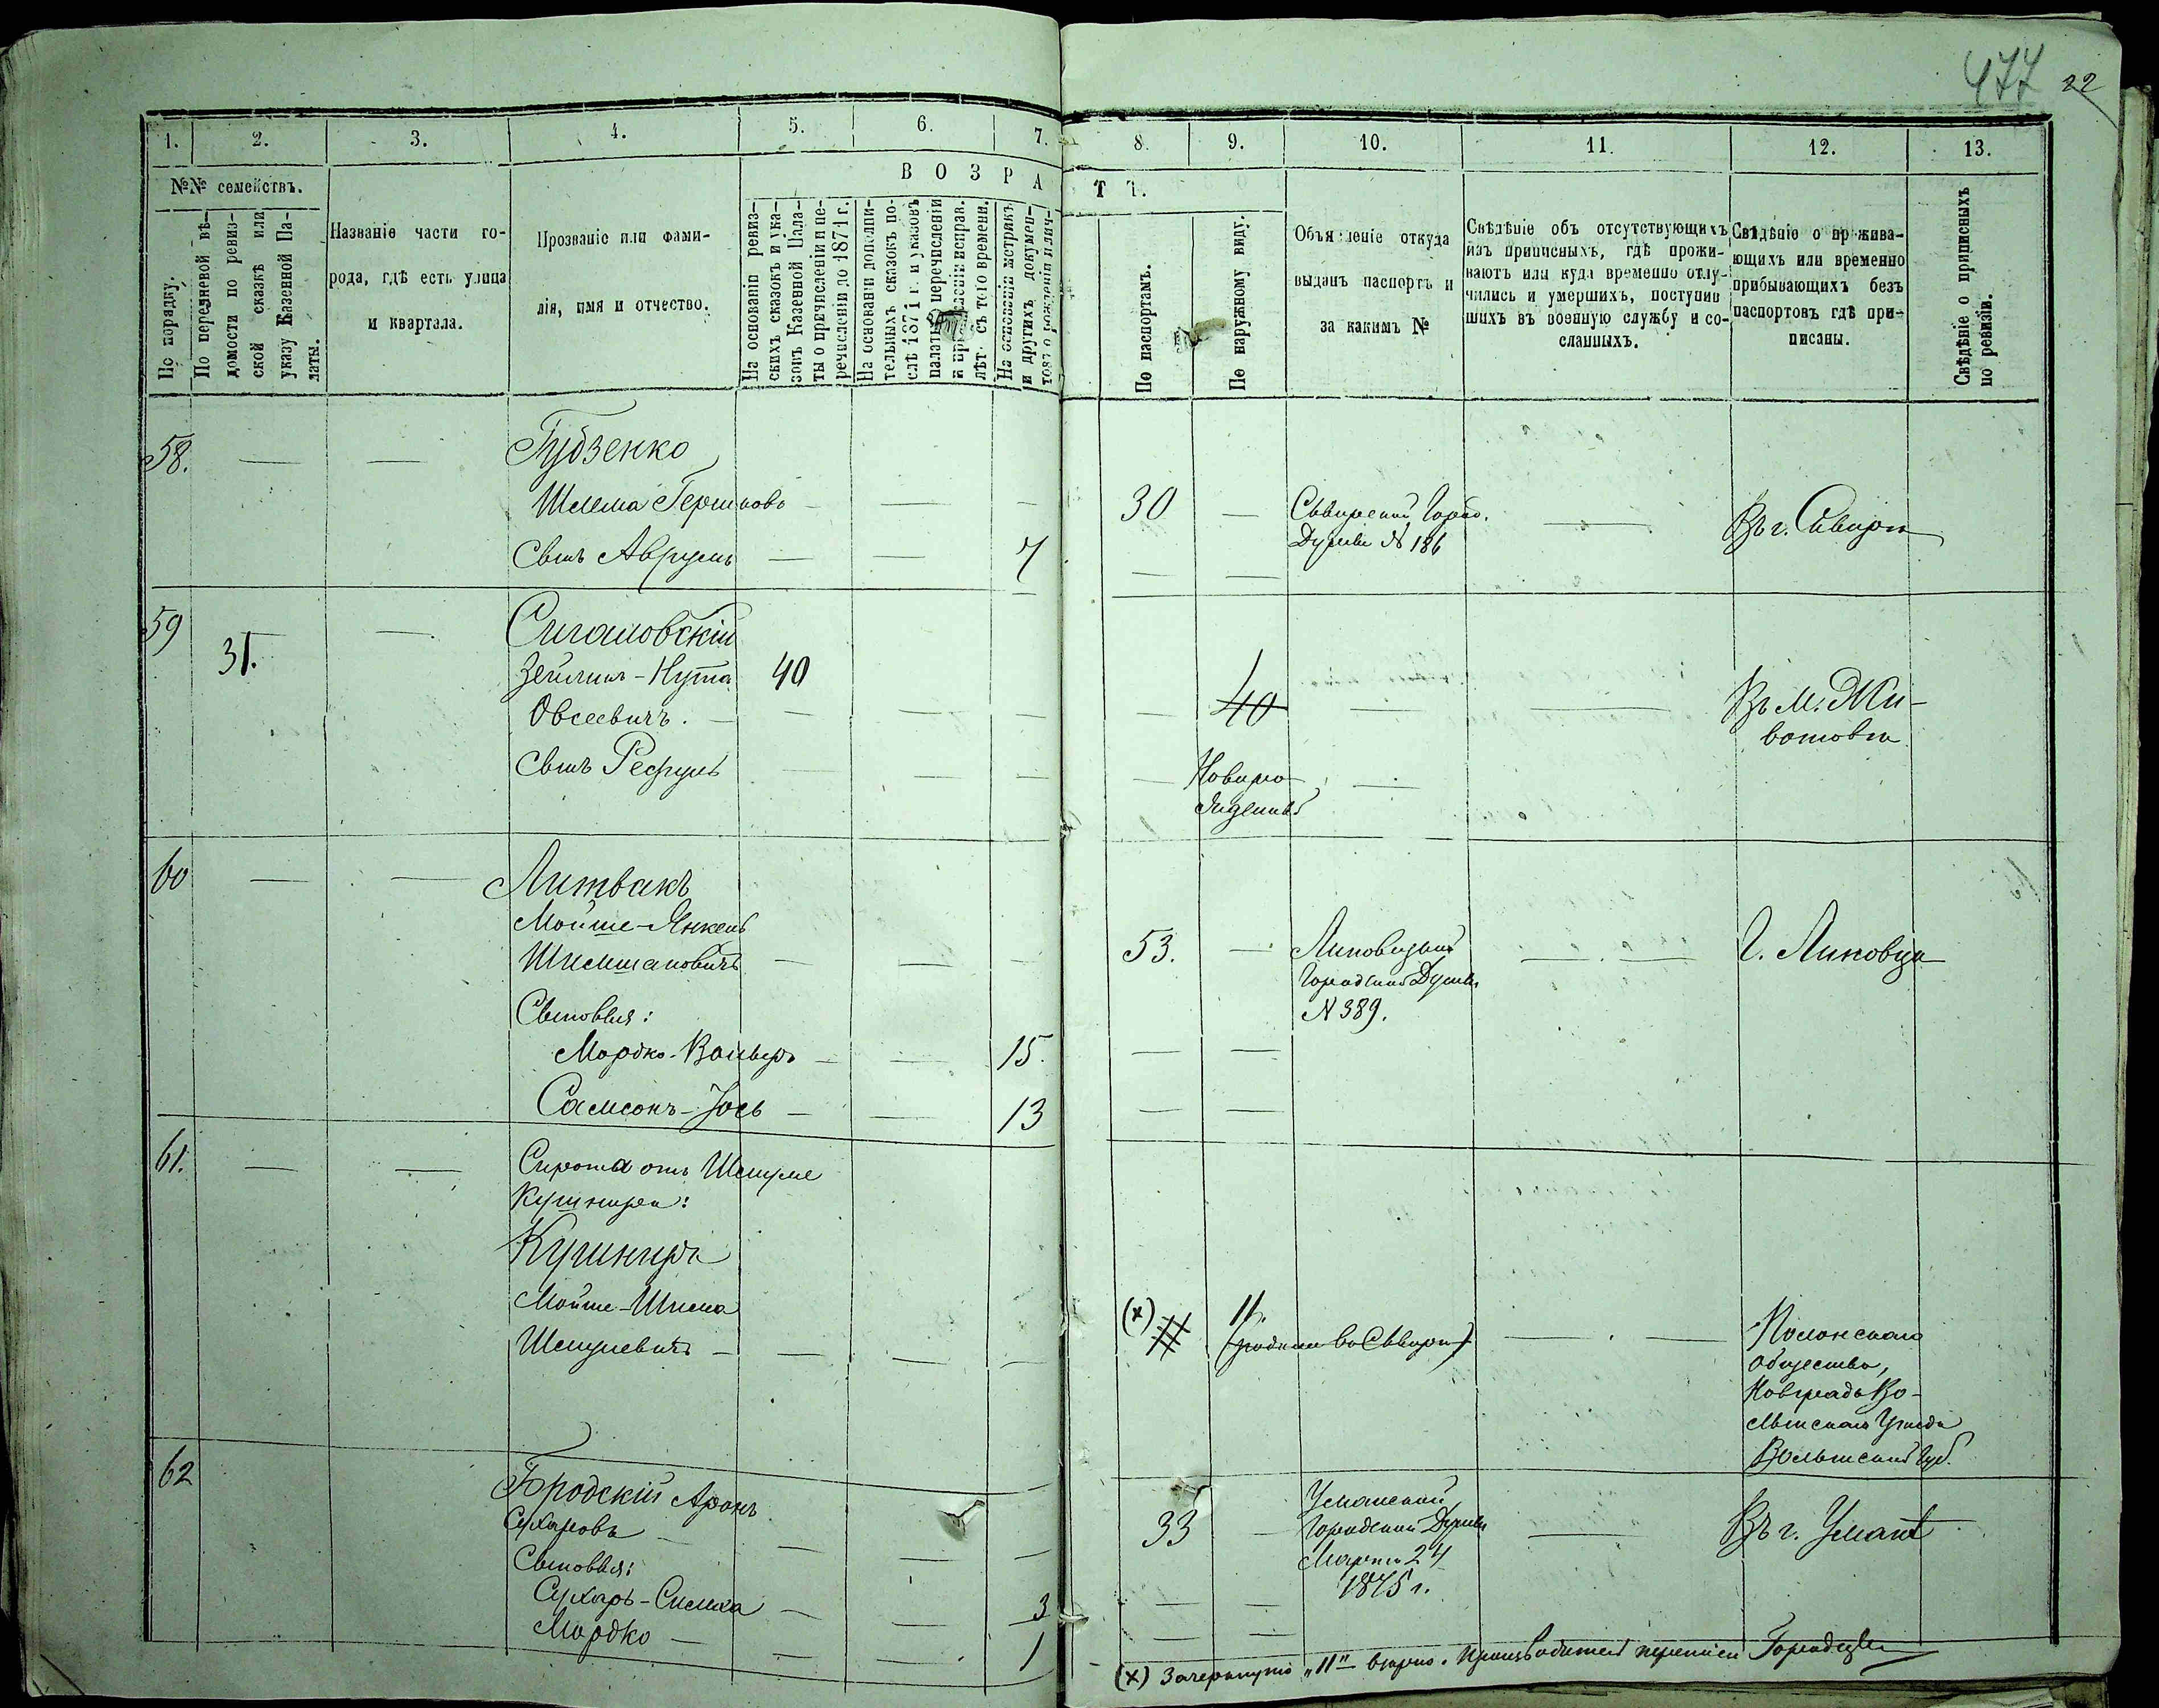 477 22
1. 2. 3. 4. 5. 6. 7.
8. 9. 10. 11. 12. 13.
№№ семействъ.
По порядку.
По передневой вѣ-
домости по ревиз-
ской сказкѣ или
указу Казенной Па-
латы.
Названіе части го-
рода, гдѣ есть улица
и квартала.
Прозваніе или фами-
лія, имя и отчество.
ВОЗРА
ТЪ.
На основаніи ревиз-
скихъ сказокъ и ука-
зовъ Казенной Пала-
ты о пречисленіи и пе-
речисленіи до 1871 г.
На основаніи дополни-
тельныхъ сказокъ по-
слѣ 1871 г. и указовъ
палаты перечисленіи
и исправ.
лѣтъ съ того времени.
На основаніи метрикъ
и другихъ докумен-
товъ о рожденіи и лич-
По паспортамъ.
По наружному виду.
Объявленіе откуда
выданъ паспортъ и
за какимъ №
Свѣдѣніе объ отсутствующихъ
изъ приписныхъ, гдѣ прожи-
ваютъ или куда временно отлу-
чились и умершихъ, поступив
шихъ въ военную службу и со-
сланныхъ.
Свѣдѣніе о прожива-
ющихъ или временно
прибывающихъ безъ
паспортовъ гдѣ при-
писаны.
Свѣдѣніе о приписныхъ
по ревизіи.
58.
Гудзенко
Шлема Гершковъ
30
Сквирской Горо.
Думы № 186
Въ г. Сквири
Сынъ Аврумъ
7
59
31.
Сигаловскій
Зейлик-Нута
40
Овсеевичъ.
40
Въ м. Жи-
вотовки
Сынъ Рефулъ
Новорож
60
Литвакъ
Мойше-Янкель
Шимшановичъ
53.
Липовецкой
Городской Думы
№ 389.
Г. Липовца
Сыновья:
Мордко-Вольвъ
15.
Самсонъ-Іось
13
61.
Сирота отъ Шмуле
Кушнира:
Кушниръ
Мойше-Шлема
Шмулевичъ
(х)
11.
(родился въ Сквири)
Полонскаго
общества,
Новградъ Во-
лынскаго Уѣзда
Волынской Губ.
62
Бродскій Аронъ
Сухаровъ
33
Уманской
Городской Думы
Марта 24
1875 г.
Въ г. Умани
Сыновья:
Сухаръ-Симха
3
Мордко
1
(х) Зачеркнуто „11" вѣрно. Производитель переписи